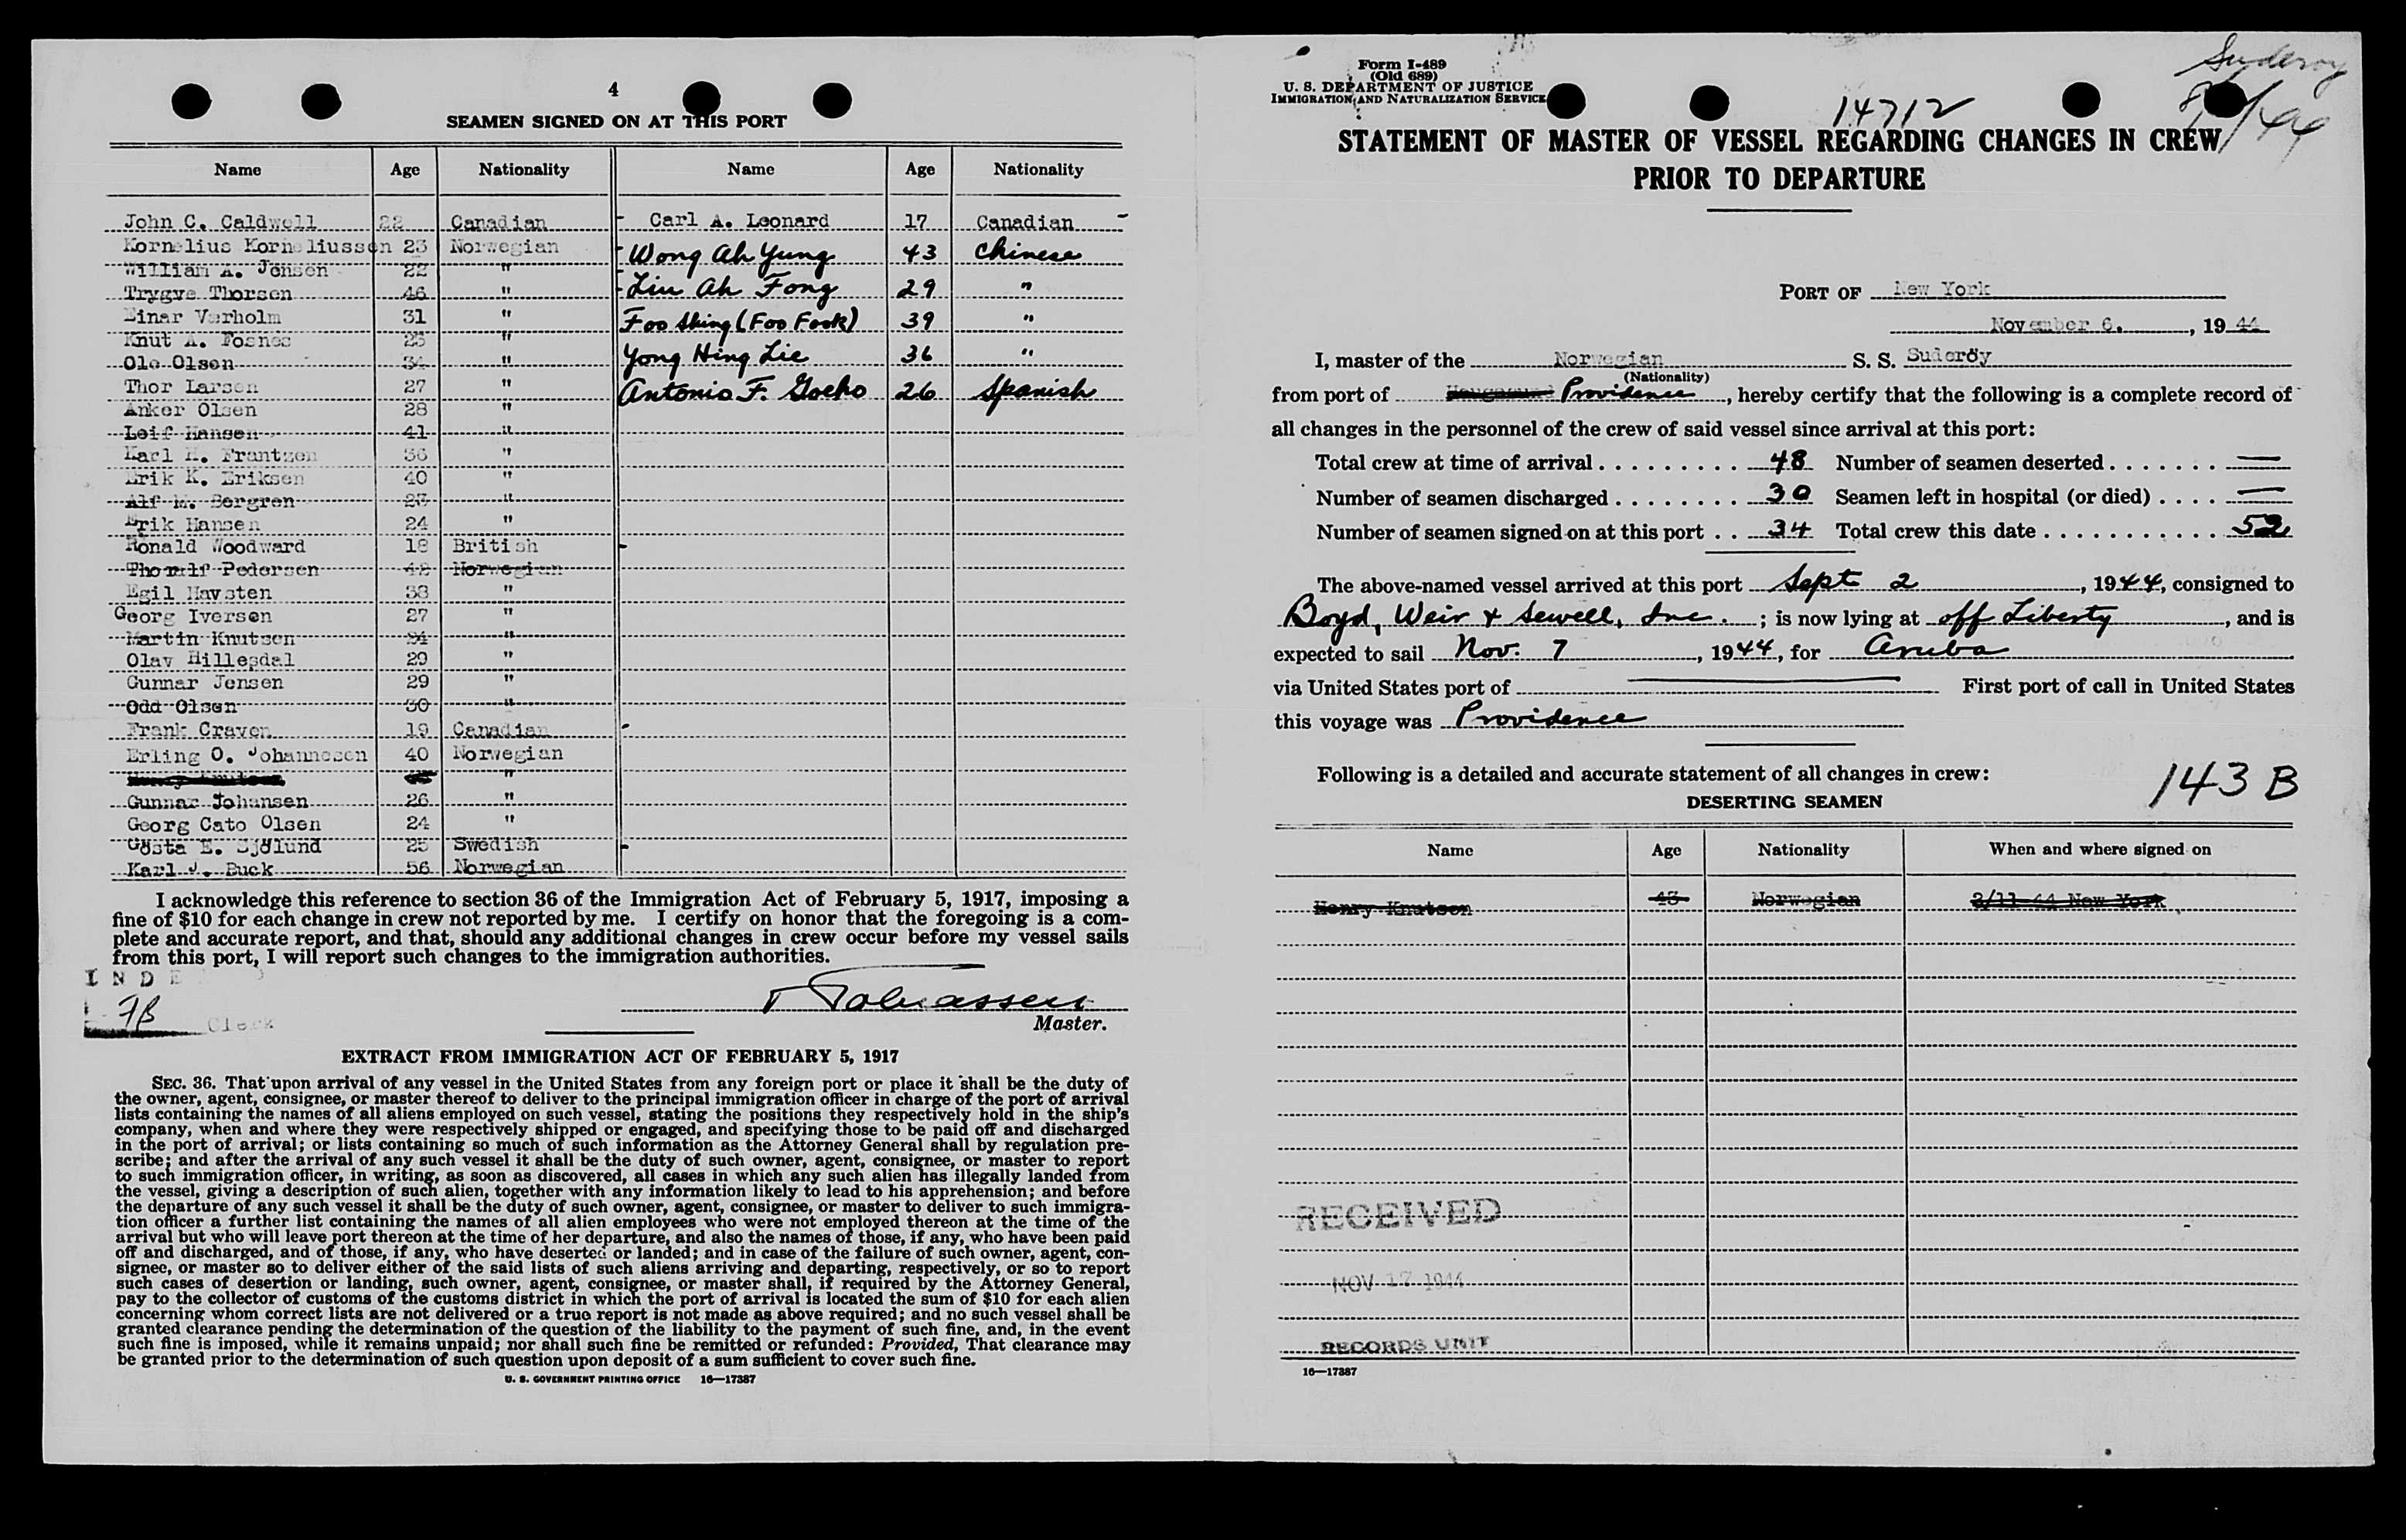 4
SEAMEN SIGNED ON AT THIS PORT
Name Age Nationality Name Age Nationality
John C. Caldwell 22 Canadian - Carl A. Leonard 17 Canadian -
Kornelius Korneliussen 23 Norwegian - Wong Ah Yung 43 Chinese
William A. Jensen 22 " - Liu Ah Fong 29 "
Trygve Thorsen 46 " Foo Shing (Foo Fook) 39 "
Einar Varholm 31 " Yong Hing Lie 36 "
Knut A. Fosnes 25 " Antonio F. Gocho 26 Spanish
Ole Olsen 34 "
Thor Larsen 27 "
Anker Olsen 28 "
Leif Hansen 41 "
Karl H. Frantzen 36 "
Erik K. Eriksen 40 "
Alf M. Bergren 23 "
Erik Hansen 24 "
Ronald Woodward 18 British -
Thoralf Pedersen 42 Norwegian
Egil Havsten 38 "
Georg Iversen 27 "
Martin Knutsen 24 "
Olav Hillesdal 29 "
Gunnar Jensen 29 "
Odd Olsen 30 "
Frank Craven 19 Canadian -
Erling O. Johannesen 40 Norwegian
"
Gunnar Johansen 26 "
Georg Cato Olsen 24 "
Gösta E. Sjölund 25 Swedish -
Karl J. Buck 56 Norwegian
I acknowledge this reference to section 36 of the Immigration Act of February 5, 1917, imposing a
fine of $10 for each change in crew not reported by me. I certify on honor that the foregoing is a com-
plete and accurate report, and that, should any additional changes in crew occur before my vessel sails
from this port, I will report such changes to the immigration authorities.
INDE
FB Clerk
T Tobiassen
Master.
EXTRACT FROM IMMIGRATION ACT OF FEBRUARY 5, 1917
SEC. 36. That upon arrival of any vessel in the United States from any foreign port or place it shall be the duty of
the owner, agent, consignee, or master thereof to deliver to the principal immigration officer in charge of the port of arrival
lists containing the names of all aliens employed on such vessel, stating the positions they respectively hold in the ship's
company, when and where they were respectively shipped or engaged, and specifying those to be paid off and discharged
in the port of arrival; or lists containing so much of such information as the Attorney General shall by regulation pre-
scribe; and after the arrival of any such vessel it shall be the duty of such owner, agent, consignee, or master to report
to such immigration officer, in writing, as soon as discovered, all cases in which any such alien has illegally landed from
the vessel, giving a description of such alien, together with any information likely to lead to his apprehension; and before
the departure of any such vessel it shall be the duty of such owner, agent, consignee, or master to deliver to such immigra-
tion officer a further list containing the names of all alien employees who were not employed thereon at the time of the
arrival but who will leave port thereon at the time of her departure, and also the names of those, if any, who have been paid
off and discharged, and of those, if any, who have deserted or landed; and in case of the failure of such owner, agent, con-
signee, or master so to deliver either of the said lists of such aliens arriving and departing, respectively, or so to report
such cases of desertion or landing, such owner, agent, consignee, or master shall, if required by the Attorney General,
pay to the collector of customs of the customs district in which the port of arrival is located the sum of $10 for each alien
concerning whom correct lists are not delivered or a true report is not made as above required; and no such vessel shall be
granted clearance pending the determination of the question of the liability to the payment of such fine, and, in the event
such fine is imposed, while it remains unpaid; nor shall such fine be remitted or refunded: Provided, That clearance may
be granted prior to the determination of such question upon deposit of a sum sufficient to cover such fine.
U. S. GOVERNMENT PRINTING OFFICE 16—17387
Form I-489
(Old 689)
U. S. DEPARTMENT OF JUSTICE
IMMIGRATION AND NATURALIZATION SERVICE
Suderoy
/44
14712
STATEMENT OF MASTER OF VESSEL REGARDING CHANGES IN CREW
PRIOR TO DEPARTURE
PORT OF New York
November 6, , 19 44
I, master of the Norwegian S. S. Suderöy
(Nationality)
from port of Providence, hereby certify that the following is a complete record of
all changes in the personnel of the crew of said vessel since arrival at this port:
Total crew at time of arrival 48 Number of seamen deserted —
Number of seamen discharged 30 Seamen left in hospital (or died) —
Number of seamen signed on at this port 34 Total crew this date 52
The above-named vessel arrived at this port Sept 2, 1944, consigned to
Boyd, Weir & Sewell, Inc. ; is now lying at off Liberty, and is
expected to sail Nov. 7, 1944, for Aruba
via United States port of — First port of call in United States
this voyage was Providence
Following is a detailed and accurate statement of all changes in crew:
143 B
DESERTING SEAMEN
Name Age Nationality When and where signed on
Henry Knutsen 45 Norwegian 2/11-44 New York
RECEIVED
NOV 17 1944
RECORDS UNIT
16—17387